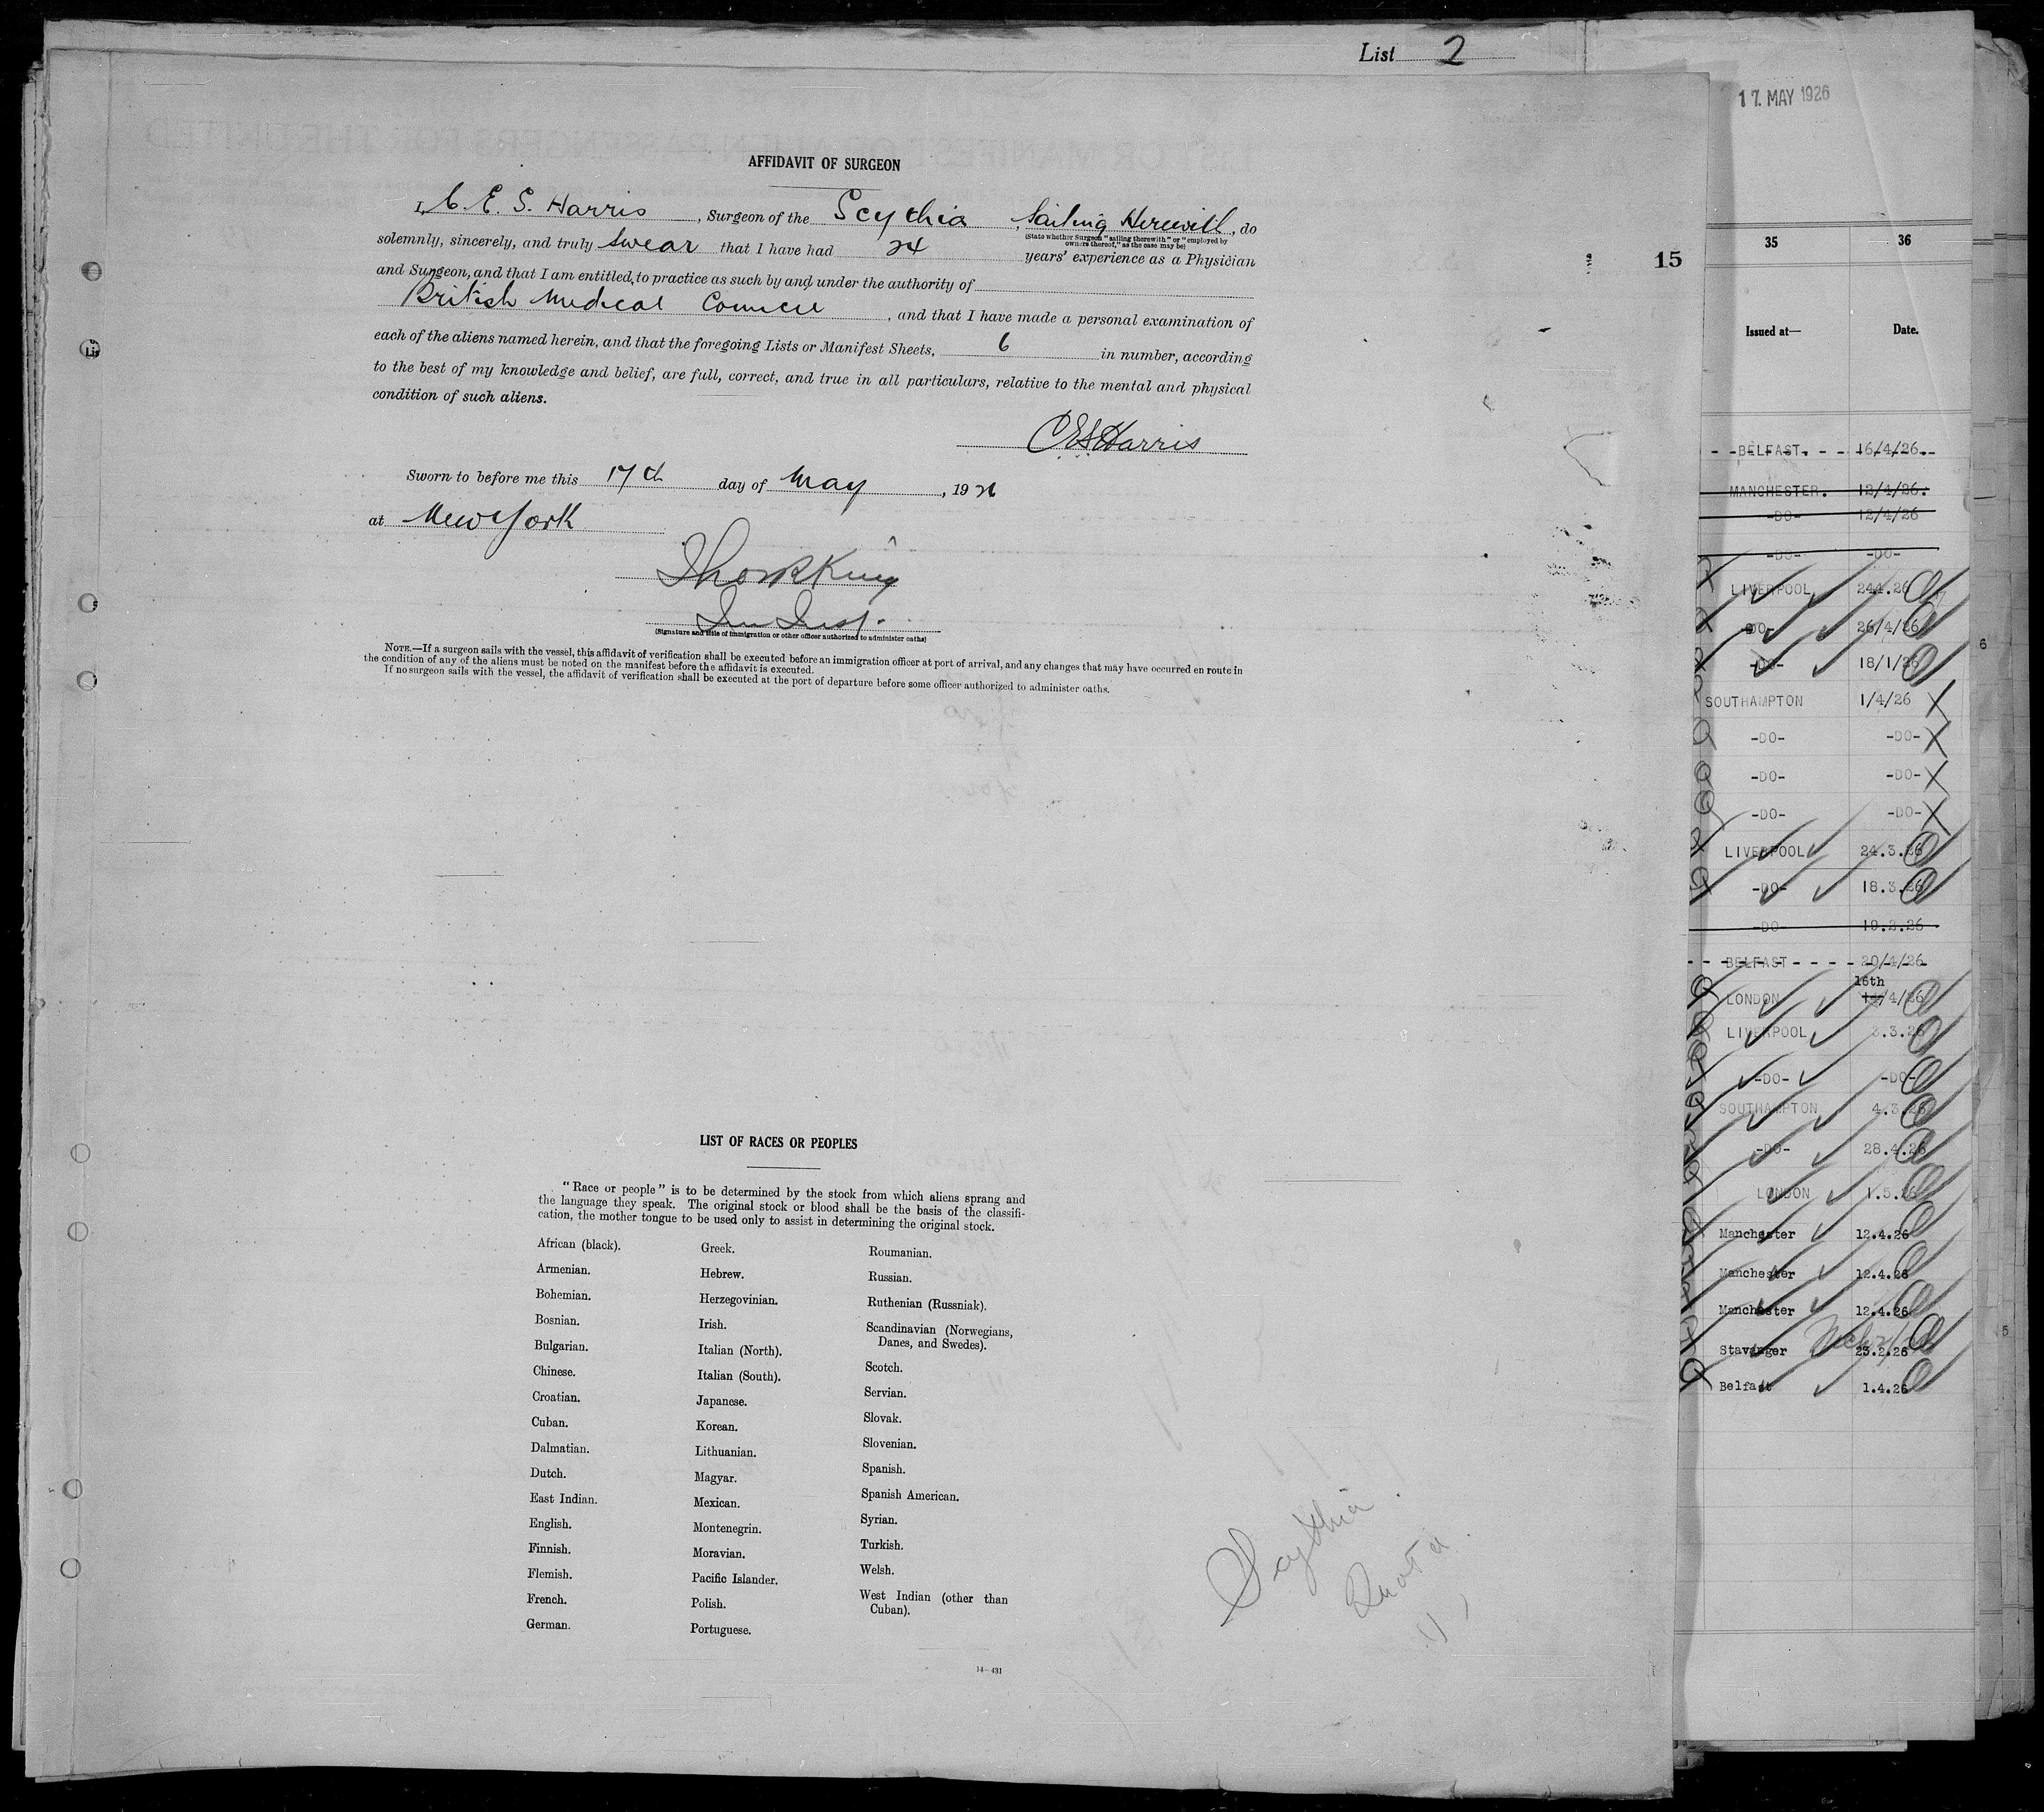 List 2
17. MAY 1926
AFFIDAVIT OF SURGEON
I, C. E. S. Harris, Surgeon of the Scythia, Sailing Herewith, do
(State whether Surgeon "sailing therewith" or "employed by
owners thereof," as the case may be)
solemnly, sincerely, and truly swear that I have had 24 years' experience as a Physician
and Surgeon, and that I am entitled to practice as such by and under the authority of
British Medical Council, and that I have made a personal examination of
each of the aliens named herein, and that the foregoing Lists or Manifest Sheets, 6 in number, according
to the best of my knowledge and belief, are full, correct, and true in all particulars, relative to the mental and physical
condition of such aliens.
CES Harris
Sworn to before me this 17th day of May, 1926
at New York
King
(Signature and title of immigration or other officer authorized to administer oaths)
NOTE.—If a surgeon sails with the vessel, this affidavit of verification shall be executed before an immigration officer at port of arrival, and any changes that may have occurred en route in
the condition of any of the aliens must be noted on the manifest before the affidavit is executed.
If no surgeon sails with the vessel, the affidavit of verification shall be executed at the port of departure before some officer authorized to administer oaths.
LIST OF RACES OR PEOPLES
"Race or people" is to be determined by the stock from which aliens sprang and
the language they speak. The original stock or blood shall be the basis of the classifi-
cation, the mother tongue to be used only to assist in determining the original stock.
African (black).
Armenian.
Bohemian.
Bosnian.
Bulgarian.
Chinese.
Croatian.
Cuban.
Dalmatian.
Dutch.
East Indian.
English.
Finnish.
Flemish.
French.
German.
Greek.
Hebrew.
Herzegovinian.
Irish.
Italian (North).
Italian (South).
Japanese.
Korean.
Lithuanian.
Magyar.
Mexican.
Montenegrin.
Moravian.
Pacific Islander.
Polish.
Portuguese.
Roumanian.
Russian.
Ruthenian (Russniak).
Scandinavian (Norwegians,
Danes, and Swedes).
Scotch.
Servian.
Slovak.
Slovenian.
Spanish.
Spanish American.
Syrian.
Turkish.
Welsh.
West Indian (other than
Cuban).
14—431
Scythia
Quota
15
35 36
Issued at— Date.
BELFAST. 16/4/26.
MANCHESTER. 12/4/26.
-DO- 12/4/26
-DO- -DO-
LIVERPOOL 24.4.26
-DO- 26/4/26
-DO- 18/1/26
SOUTHAMPTON 1/4/26
-DO- -DO-
-DO- -DO-
-DO- -DO-
LIVERPOOL 24.3.26
-DO- 18.3.26
-DO- 19.2.26
BELFAST 20/4/26
16th
LONDON 14/4/26
LIVERPOOL 3.3.26
-DO- -DO-
SOUTHAMPTON 4.3.26
-DO- 28.4.26
LONDON 1.5.26
Manchester 12.4.26
Manchester 12.4.26
Manchester 12.4.26
Stavanger 23.2.26
Belfast 1.4.26
6
5